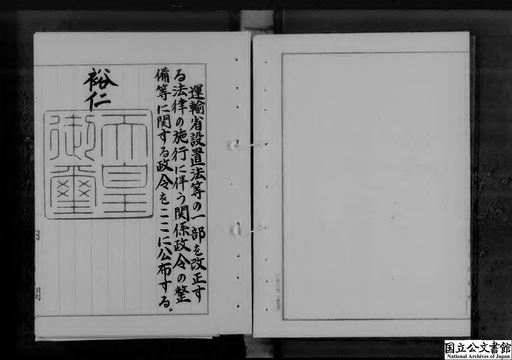 運輸省設置法等の一部を改正す
る法律の施行に伴う関係政令の整
備等に関する政令をここに公布する。
裕仁
天皇
御璽
国立公文書館
National Archives of Japan